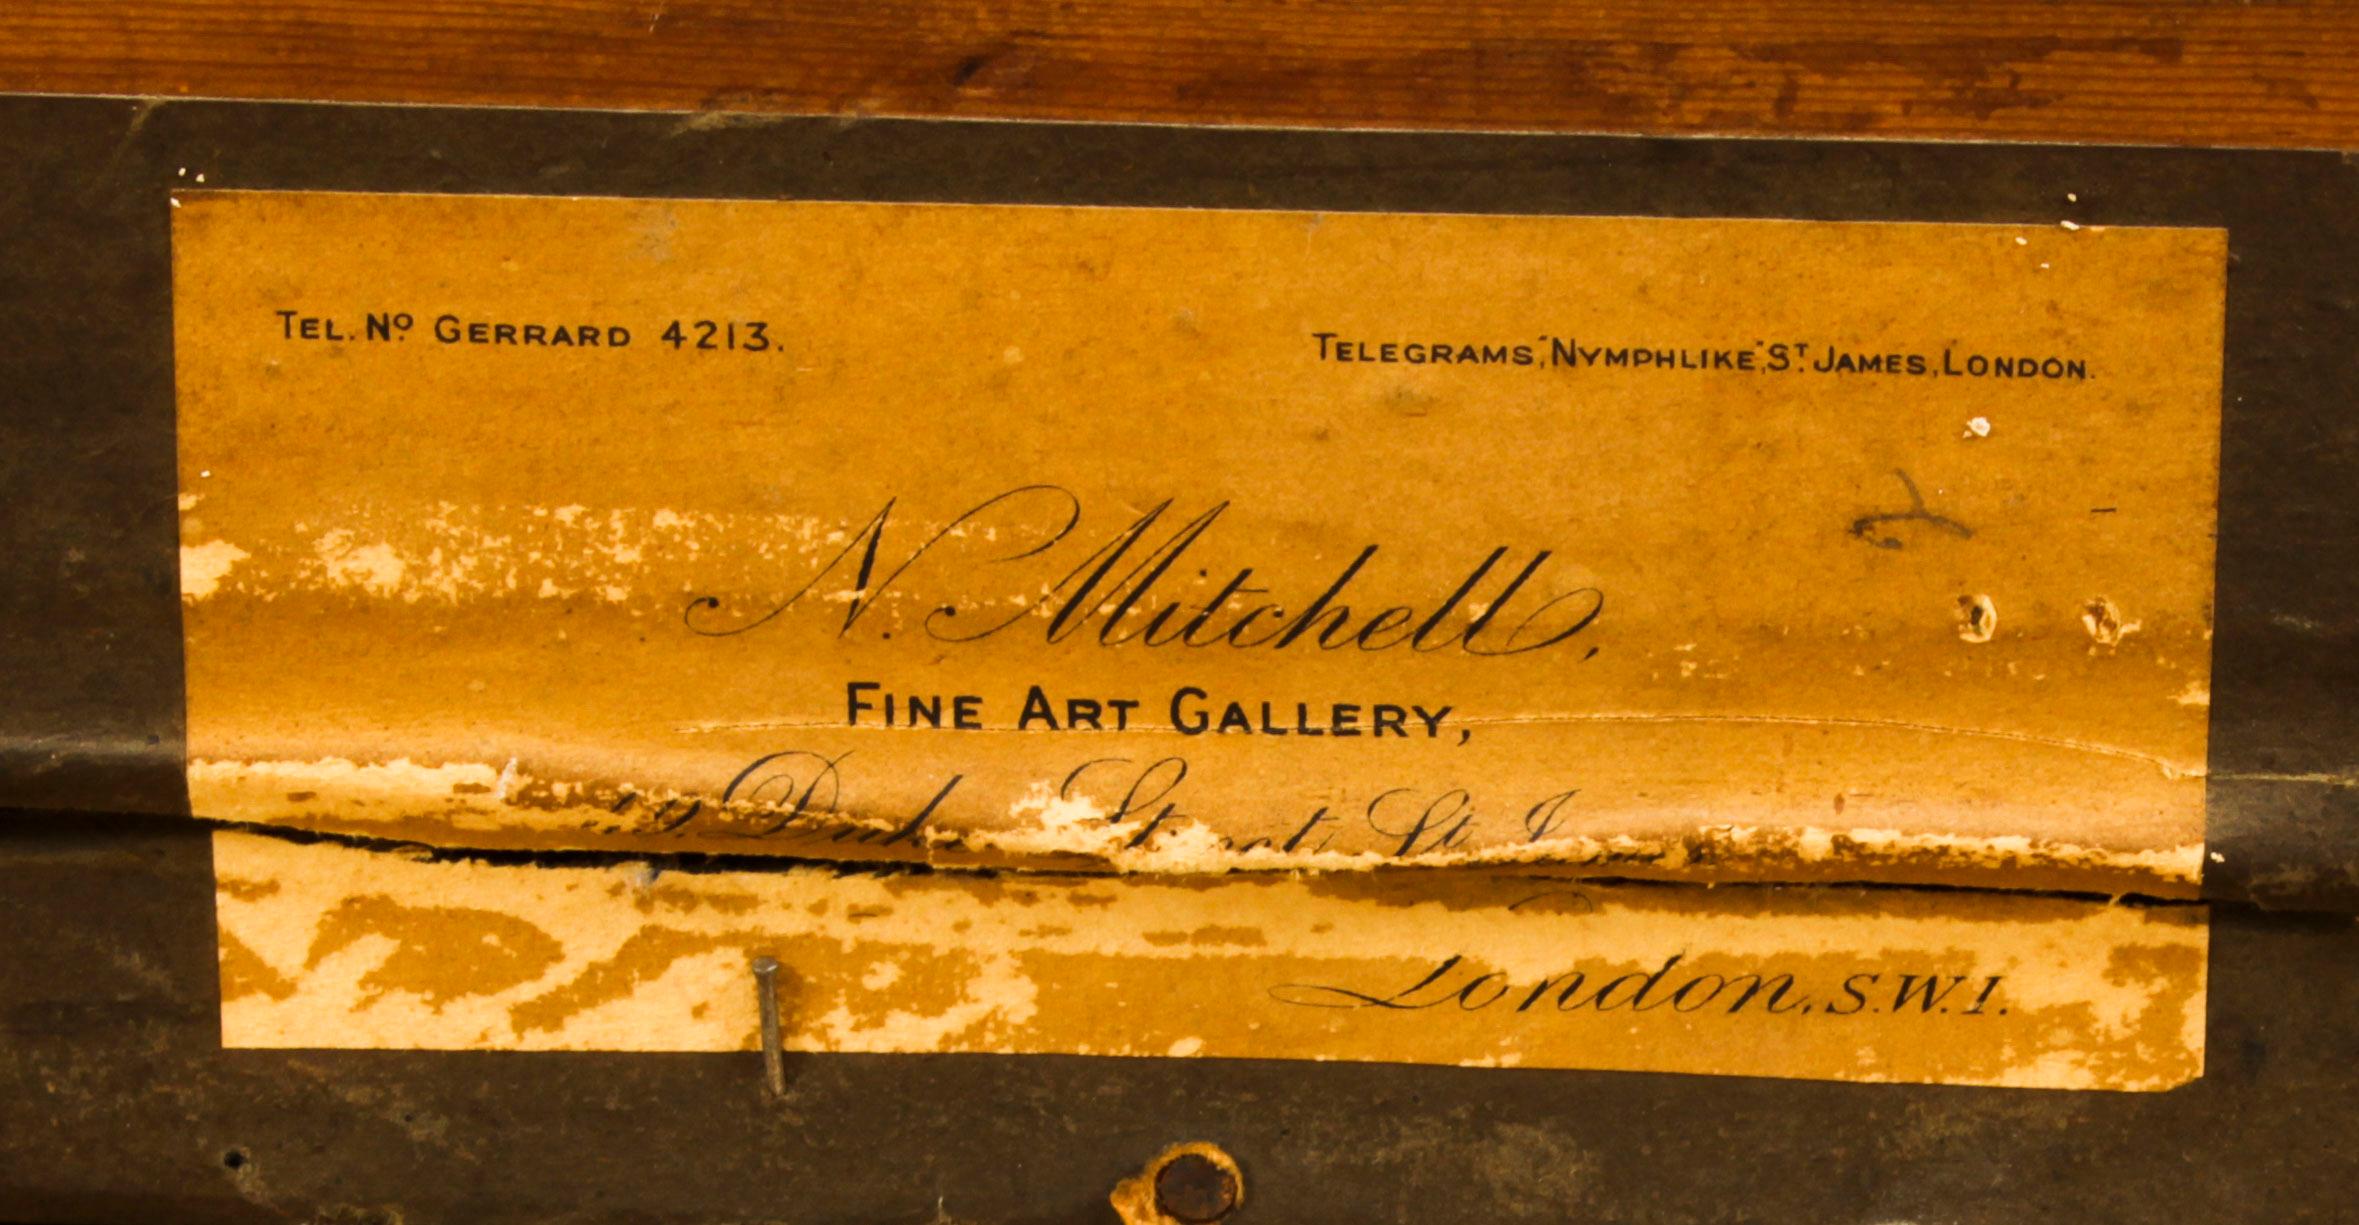 TEL. Nº GERRARD 4213.
TELEGRAMS, "NYMPHLIKE", ST JAMES, LONDON.
N. Mitchell,
FINE ART GALLERY,
Duke Street, St
London, S.W.1.